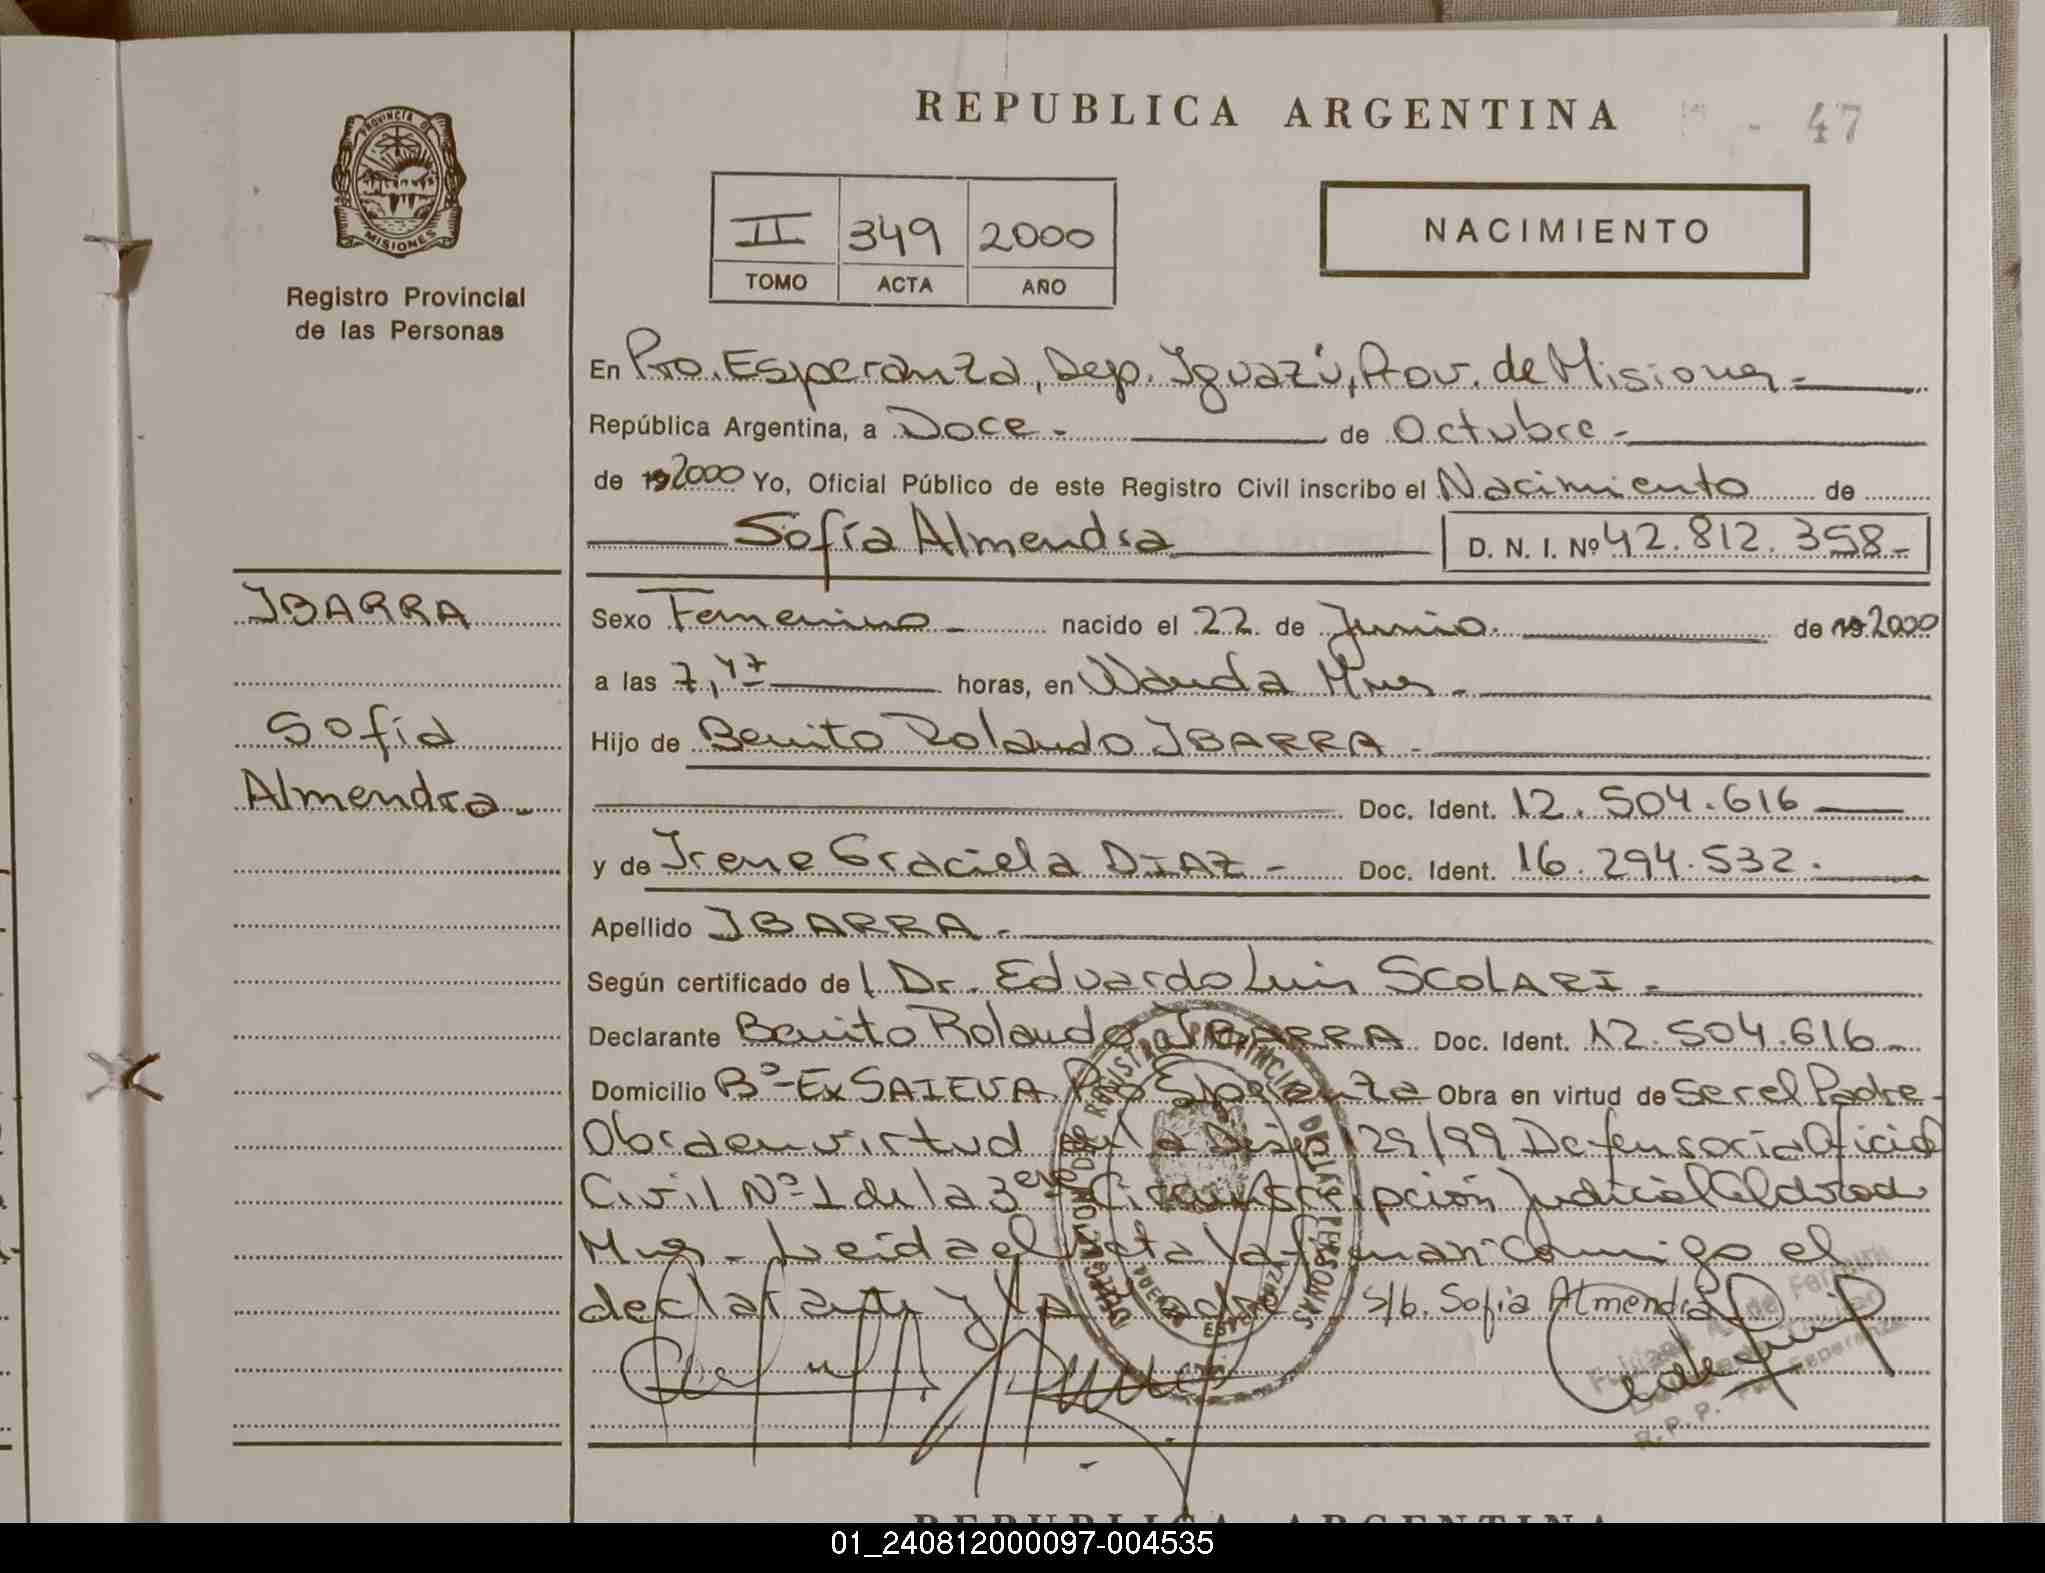 REPUBLICA ARGENTINA
47
PROVINCIA DE
MISIONES
Registro Provincial
de las Personas
II 349 2000
TOMO ACTA AÑO
NACIMIENTO
En Pto. Esperanza, Dep. Iguazú, Prov. de Misiones -
República Argentina, a Doce - de Octubre -
de 19 2000 Yo, Oficial Público de este Registro Civil inscribo el Nacimiento de
Sofía Almendra D. N. I. Nº 42.812.358-
IBARRA
Sofía
Almendra -
Sexo Femenino - nacido el 22 de Junio. de 19 2000
a las 7,47 horas, en Wanda Mnes -
Hijo de Benito Rolando IBARRA -
Doc. Ident. 12.504.616
y de Irene Graciela DIAZ - Doc. Ident. 16.294.532.
Apellido IBARRA -
Según certificado del Dr. Eduardo Luis SCOLARI -
Declarante Benito Rolando IBARRA Doc. Ident. 12.504.616 -
Domicilio Bº-Ex SAIEVA Pto Esperanza Obra en virtud de ser el Padre -
Obra en virtud de la 29/99 Defensoría Oficial
Civil Nº 1 de la 3era Circunscripción Judicial Eldorado
Mnes - Leida el acta la firman conmigo el
declarante y la madre s/b. Sofía Almendra
REGISTRO PROVINCIAL DE LAS PERSONAS
DELEGACION
PUERTO ESPERANZA
R.P.P. Pto. Esperanza
REPUBLICA ARGENTINA
01_240812000097-004535